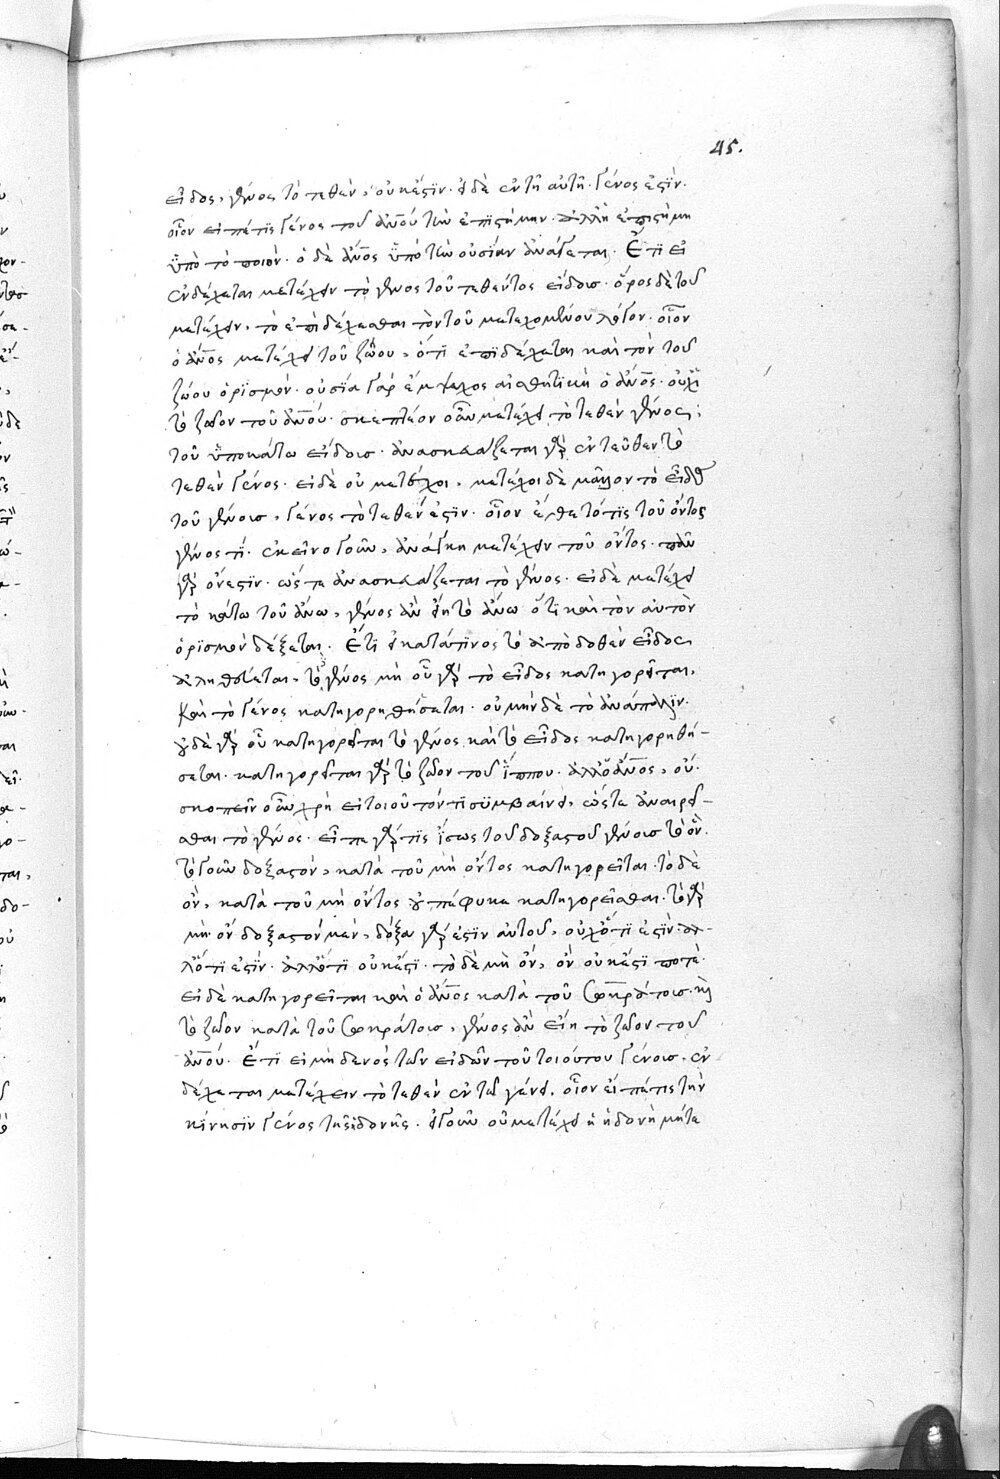 45.
εἶδος, γένος τὸ τεθὲν, οὐκ ἔστϊν· εἰ δὲ ἐν τῇ αὐτῇ· γένος ἐστϊν·
οἷον εἴπέ τϊς γένος τοῦ ἀνου τὴν ἐπϊστήμην· ἀλλ' ἡ ἐπιστήμη
ὑπὸ τὸ ποιόν· ὁ δὲ ἄνος ὑπὸ τὴν οὐσίαν ἀνάγεται· Ἔτι εἰ
ἐνδέχεται μετέχειν τὸ γένος τοῦ τεθέντος εἴδους· ὅρος δὲ τοῦ
μετέχειν, τὸ ἐπιδέχεσθαι τὸν τοῦ μετεχομένου λόγον· οἷον
ὁ ἄνος μετέχει τοῦ ζώου, ὅτϊ ἐπϊδέχεται καὶ τὸν τοῦ
ζώου ὁρϊσμόν· οὐσία γὰρ ἔμψυχος αἰσθητϊκὴ ὁ ἄνος· οὐχὶ
τὸ ζῶον τοῦ ἀνου· σκεπτέον οὖν μετέχει τὸ τεθὲν γένος,
τοῦ ὑποκάτω εἴδους· ἀνασκευάζεται γὰρ ἐντεῦθεν τὸ
τεθὲν γένος· εἰ δὲ οὐ μετέχοι, μετέχοι δὲ μᾶλλον τὸ εἶδος
τοῦ γένους, γένος τὸ τεθέν ἐστϊν· οἷον ἔθετό τϊς τοῦ ὄντος
γένος τϊ· ἐκεῖνο γοῦν, ἀνάγκη μετέχειν τοῦ ὄντος· πᾶν
γὰρ ὄν ἐστϊν· ὥστε ἀνασκευάζεται τὸ γένος· εἰ δὲ μετέχει
τὸ κάτω τοῦ ἄνω, γένος ἂν εἴη τὸ ἄνω ὅτϊ καὶ τὸν αὐτὸν
ὁρϊσμὸν δέξεται. Ἔτϊ εἰ κατά τινος τὸ ἀποδοθὲν εἶδος
ἀληθεύεται, τὸ γένος μή· οὗ γὰρ τὸ εἶδος κατηγορεῖται,
καὶ τὸ γένος κατηγορηθήσεται· οὐ μὴν δὲ τὸ ἀνάπαλϊν·
οὐδὲ γὰρ οὗ κατηγορεῖται τὸ γένος καὶ τὸ εἶδος κατηγορηθή-
σεται· κατηγορεῖται γὰρ τὸ ζῶον τοῦ ἵππου· ἀλλ' ὁ ἄνος, οὔ·
σκοπεῖν οὖν χρὴ εἰ τοιοῦτόν τϊ συμβαίνει, ὥστε ἀναιρεῖ-
σθαι τὸ γένος· εἶπε γάρ τϊς ἴσως τοῦ δοξαστοῦ γένος τὸ ὄν.
τὸ γοῦν δοξαστὸν, κατὰ τοῦ μὴ ὄντος κατηγορεῖται· τὸ δὲ
ὂν, κατὰ τοῦ μὴ ὄντος οὐ πέφυκε κατηγορεῖσθαι· τὸ γὰρ
μὴ ὂν δοξαστόν μέν, δόξα γάρ ἐστϊν αὐτοῦ, οὐχ' ὅτϊ ἐστϊν· ἀλ-
λ' ὅτϊ ἐστϊν· ἀλλ' ὅτϊ οὐκ ἔστϊ· τὸ δὲ μὴ ὂν, ὂν οὐκ ἔστϊ ποτέ·
εἰ δὲ κατηγορεῖται καὶ ὁ ἄνος κατὰ τοῦ Σωκράτους, καὶ
τὸ ζῶον κατὰ τοῦ Σωκράτους, γένος ἂν εἴη τὸ ζῶον τοῦ
ἀνου· Ἔτϊ εἰ μηδενὸς τῶν εἰδῶν τοῦ τοιούτου γένους, ἐν
δέχεται μετέχειν τὸ τεθὲν ἐν τῷ γένει. οἷον εἴπέ τις τὴν
κίνησϊν γένος τῆς ἡδονῆς. εἰ γοῦν οὐ μετέχει ἡ ἡδονὴ μήτε